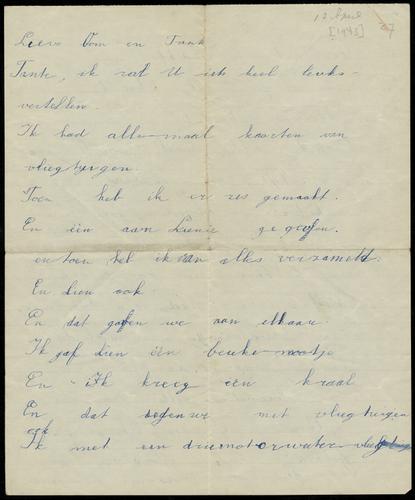 12 April
[1943]
Lieve Oom en Tante
Tante, ik zal U iets heel leuks
vertellen.
Ik had alle-maal kaarten van
vliegtuigen.
Toen heb ik er zes gemaakt.
En één aan Lienie gegeefen.
en toen heb ik van alles verzameld.
En Lien ook
En dat gafen we aan elkaar.
Ik gaf Lien één beuke-nootje
En ik kreeg een kraal
En dat met vliegtuigen
ook
Ik met een driemotorwater-vliegtuig